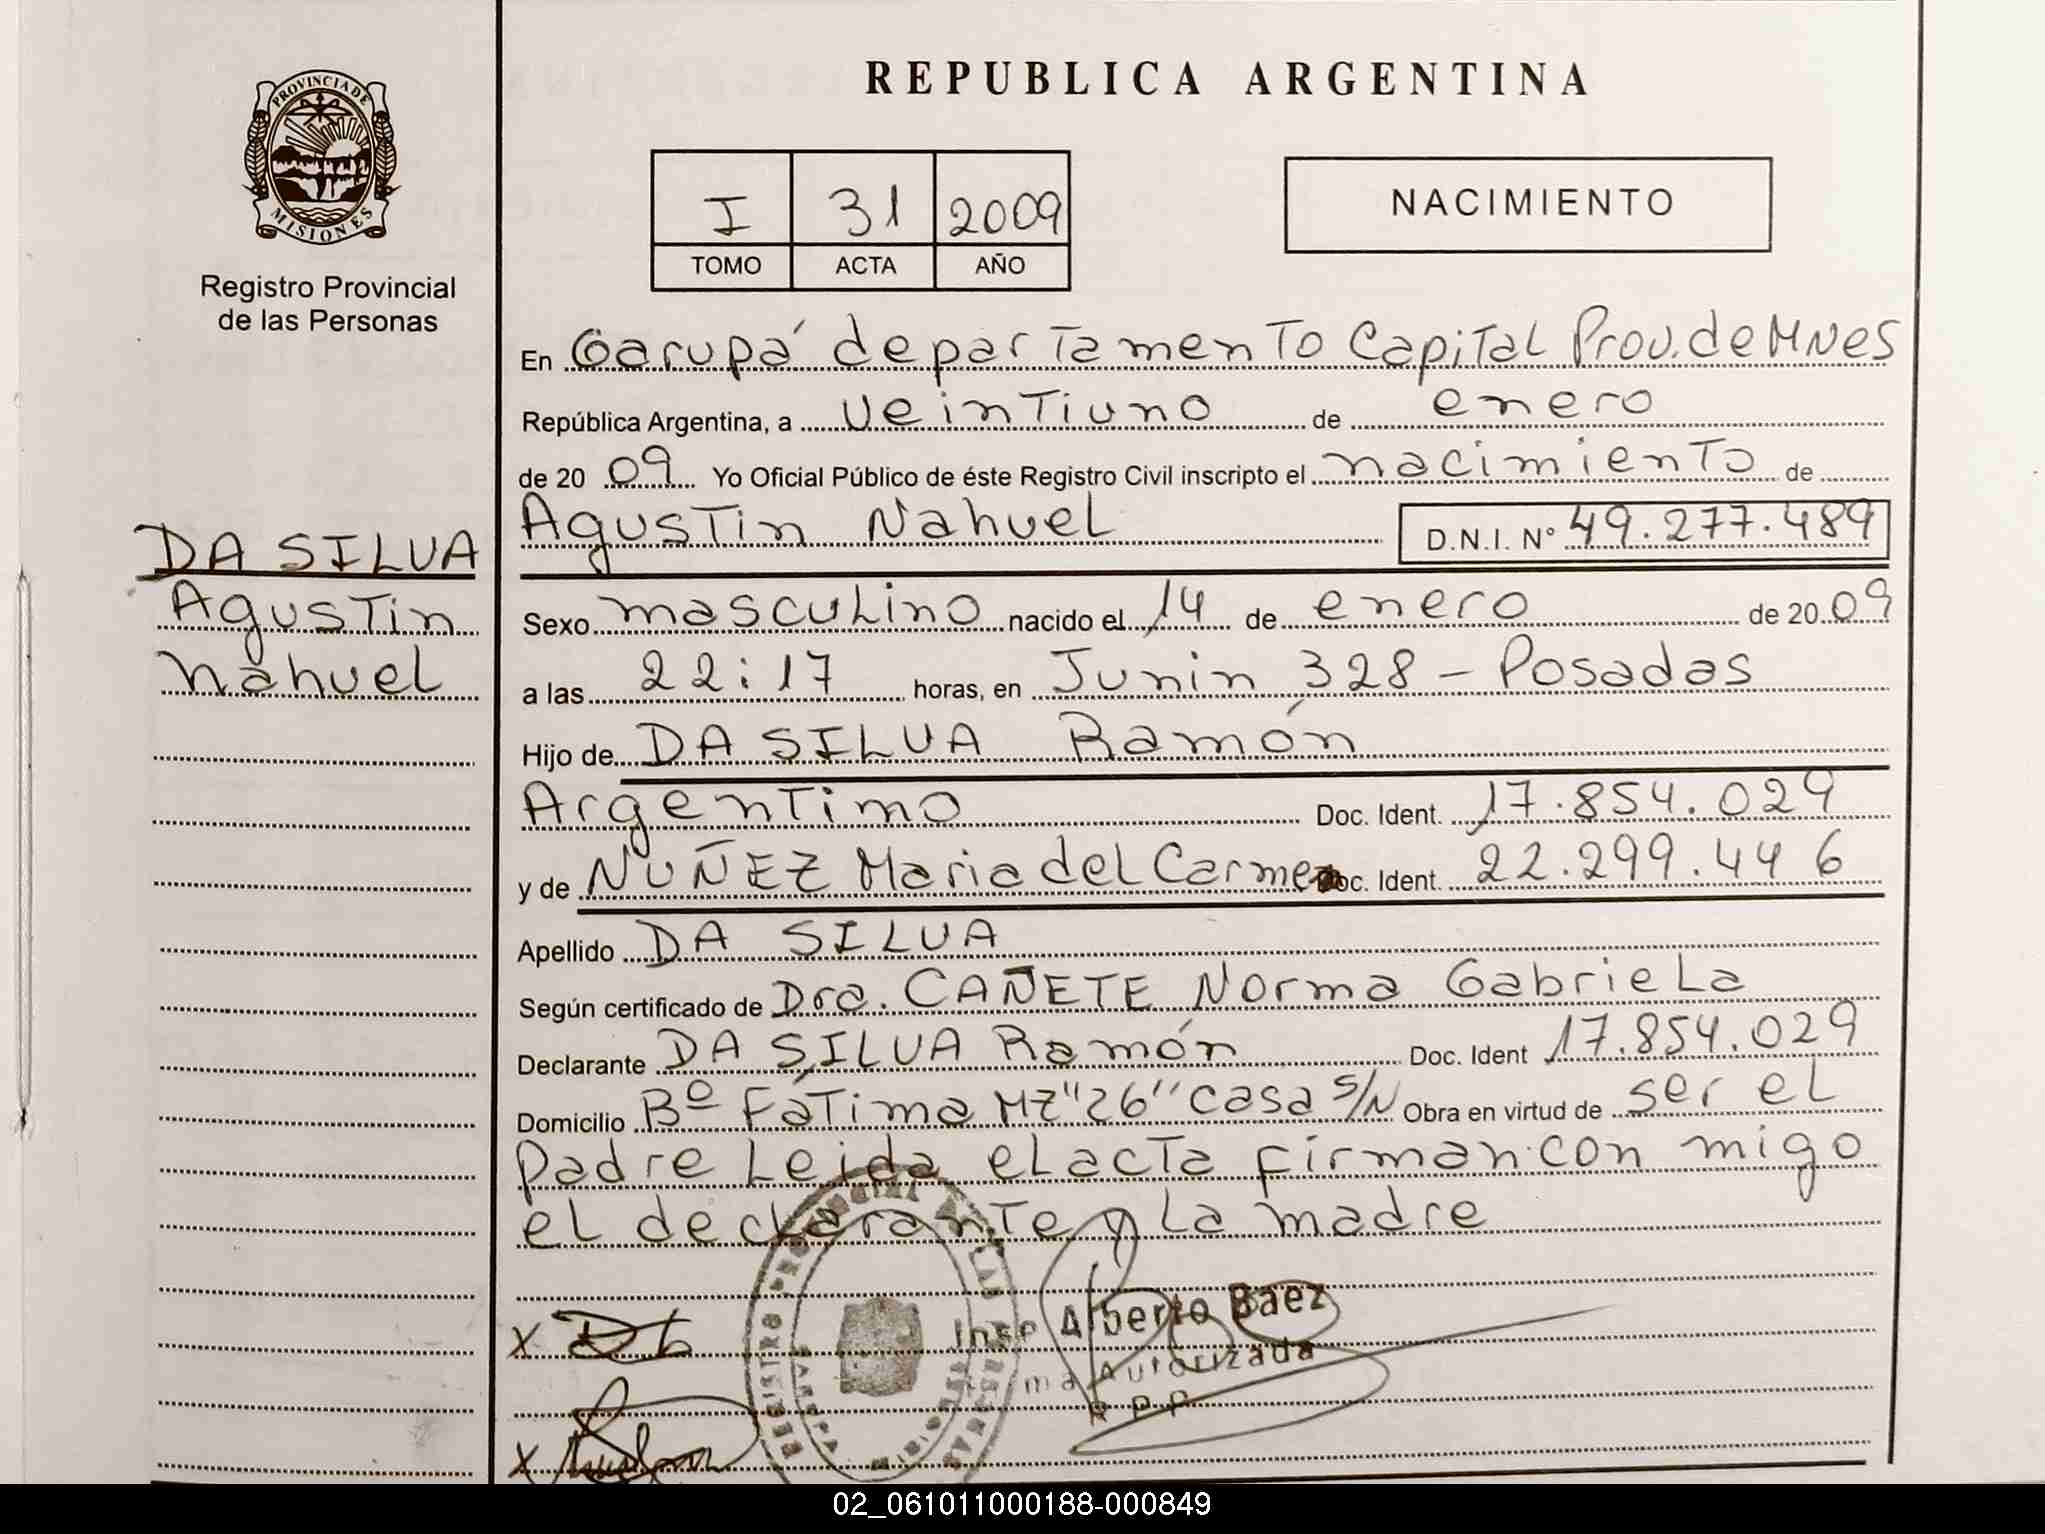 PROVINCIA DE
MISIONES
Registro Provincial
de las Personas
DA SILVA
Agustin
Nahuel
REPUBLICA ARGENTINA
I 31 2009
TOMO ACTA AÑO
NACIMIENTO
En Garupá departamento Capital Prov. de MNes
República Argentina, a veintiuno de enero
de 20 09 Yo Oficial Público de éste Registro Civil inscripto el nacimiento de
Agustin Nahuel D.N.I. Nº 49.277.489
Sexo masculino nacido el 14 de enero de 20 09
a las 22:17 horas, en Junin 328 - Posadas
Hijo de DA SILVA Ramón
Argentino Doc. Ident. 17.854.029
y de NUÑEZ Maria del Carmen Doc. Ident. 22.299.446
Apellido DA SILVA
Según certificado de Dra. CAÑETE Norma Gabriela
Declarante DA SILVA Ramón Doc. Ident 17.854.029
Domicilio Bº Fátima MZ "26" casa S/N Obra en virtud de ser el
padre Leida el acta firman con migo
el declarante y La madre
REGISTRO PROVINCIAL DE LAS PERSONAS
Alberto Baez
Autorizada
R P P
X
X
02_061011000188-000849